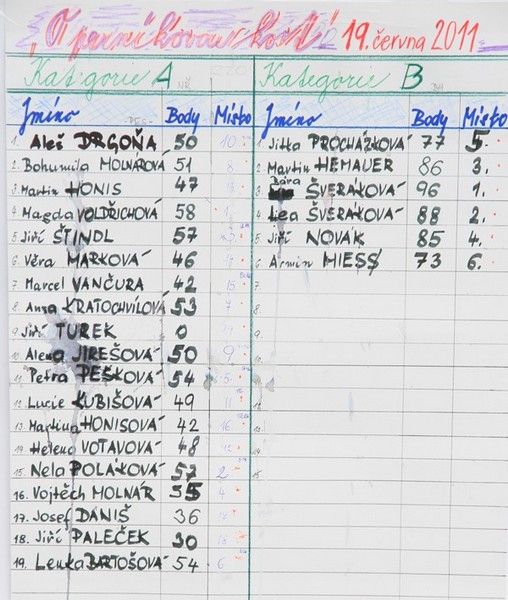 „O perníkovou kost" 19. června 2011
Kategorie A
Jméno Body Místo
1. Aleš DRGOŇA 50 10.
2. Bohumila MOLNÁROVÁ 51 8
3. Martin HONIS 47
4. Magda VOLDŘICHOVÁ 58
5. Jiří ŠTINDL 57
6. Věra MARKOVÁ 46
7. Marcel VANČURA 42 15
8. Anna KRATOCHVÍLOVÁ 53 7
9. Jiří TUREK 0
10. Alena JIREŠOVÁ 50 9
11. Petra PEŠKOVÁ 54 5
12. Lucie KUBIŠOVÁ 49 11
13. Martina HONISOVÁ 42 16
14. Helena VOTAVOVÁ 48 12
15. Nela POLÁKOVÁ 57 2
16. Vojtěch MOLNÁR 55 4
17. Josef DANIŠ 36
18. Jiří PALEČEK 30
19. Lenka BARTOŠOVÁ 54 6
Kategorie B
Jméno Body Místo
1. Jitka PROCHÁZKOVÁ 77 5.
2. Martin HEMAUER 86 3.
3. Bára ŠVERÁKOVÁ 96 1.
4. Lea ŠVERÁKOVÁ 88 2.
5. Jiří NOVÁK 85 4.
6. Armin MIESS 73 6.
7.
8.
9.
10.
11.
12.
13.
14.
15.